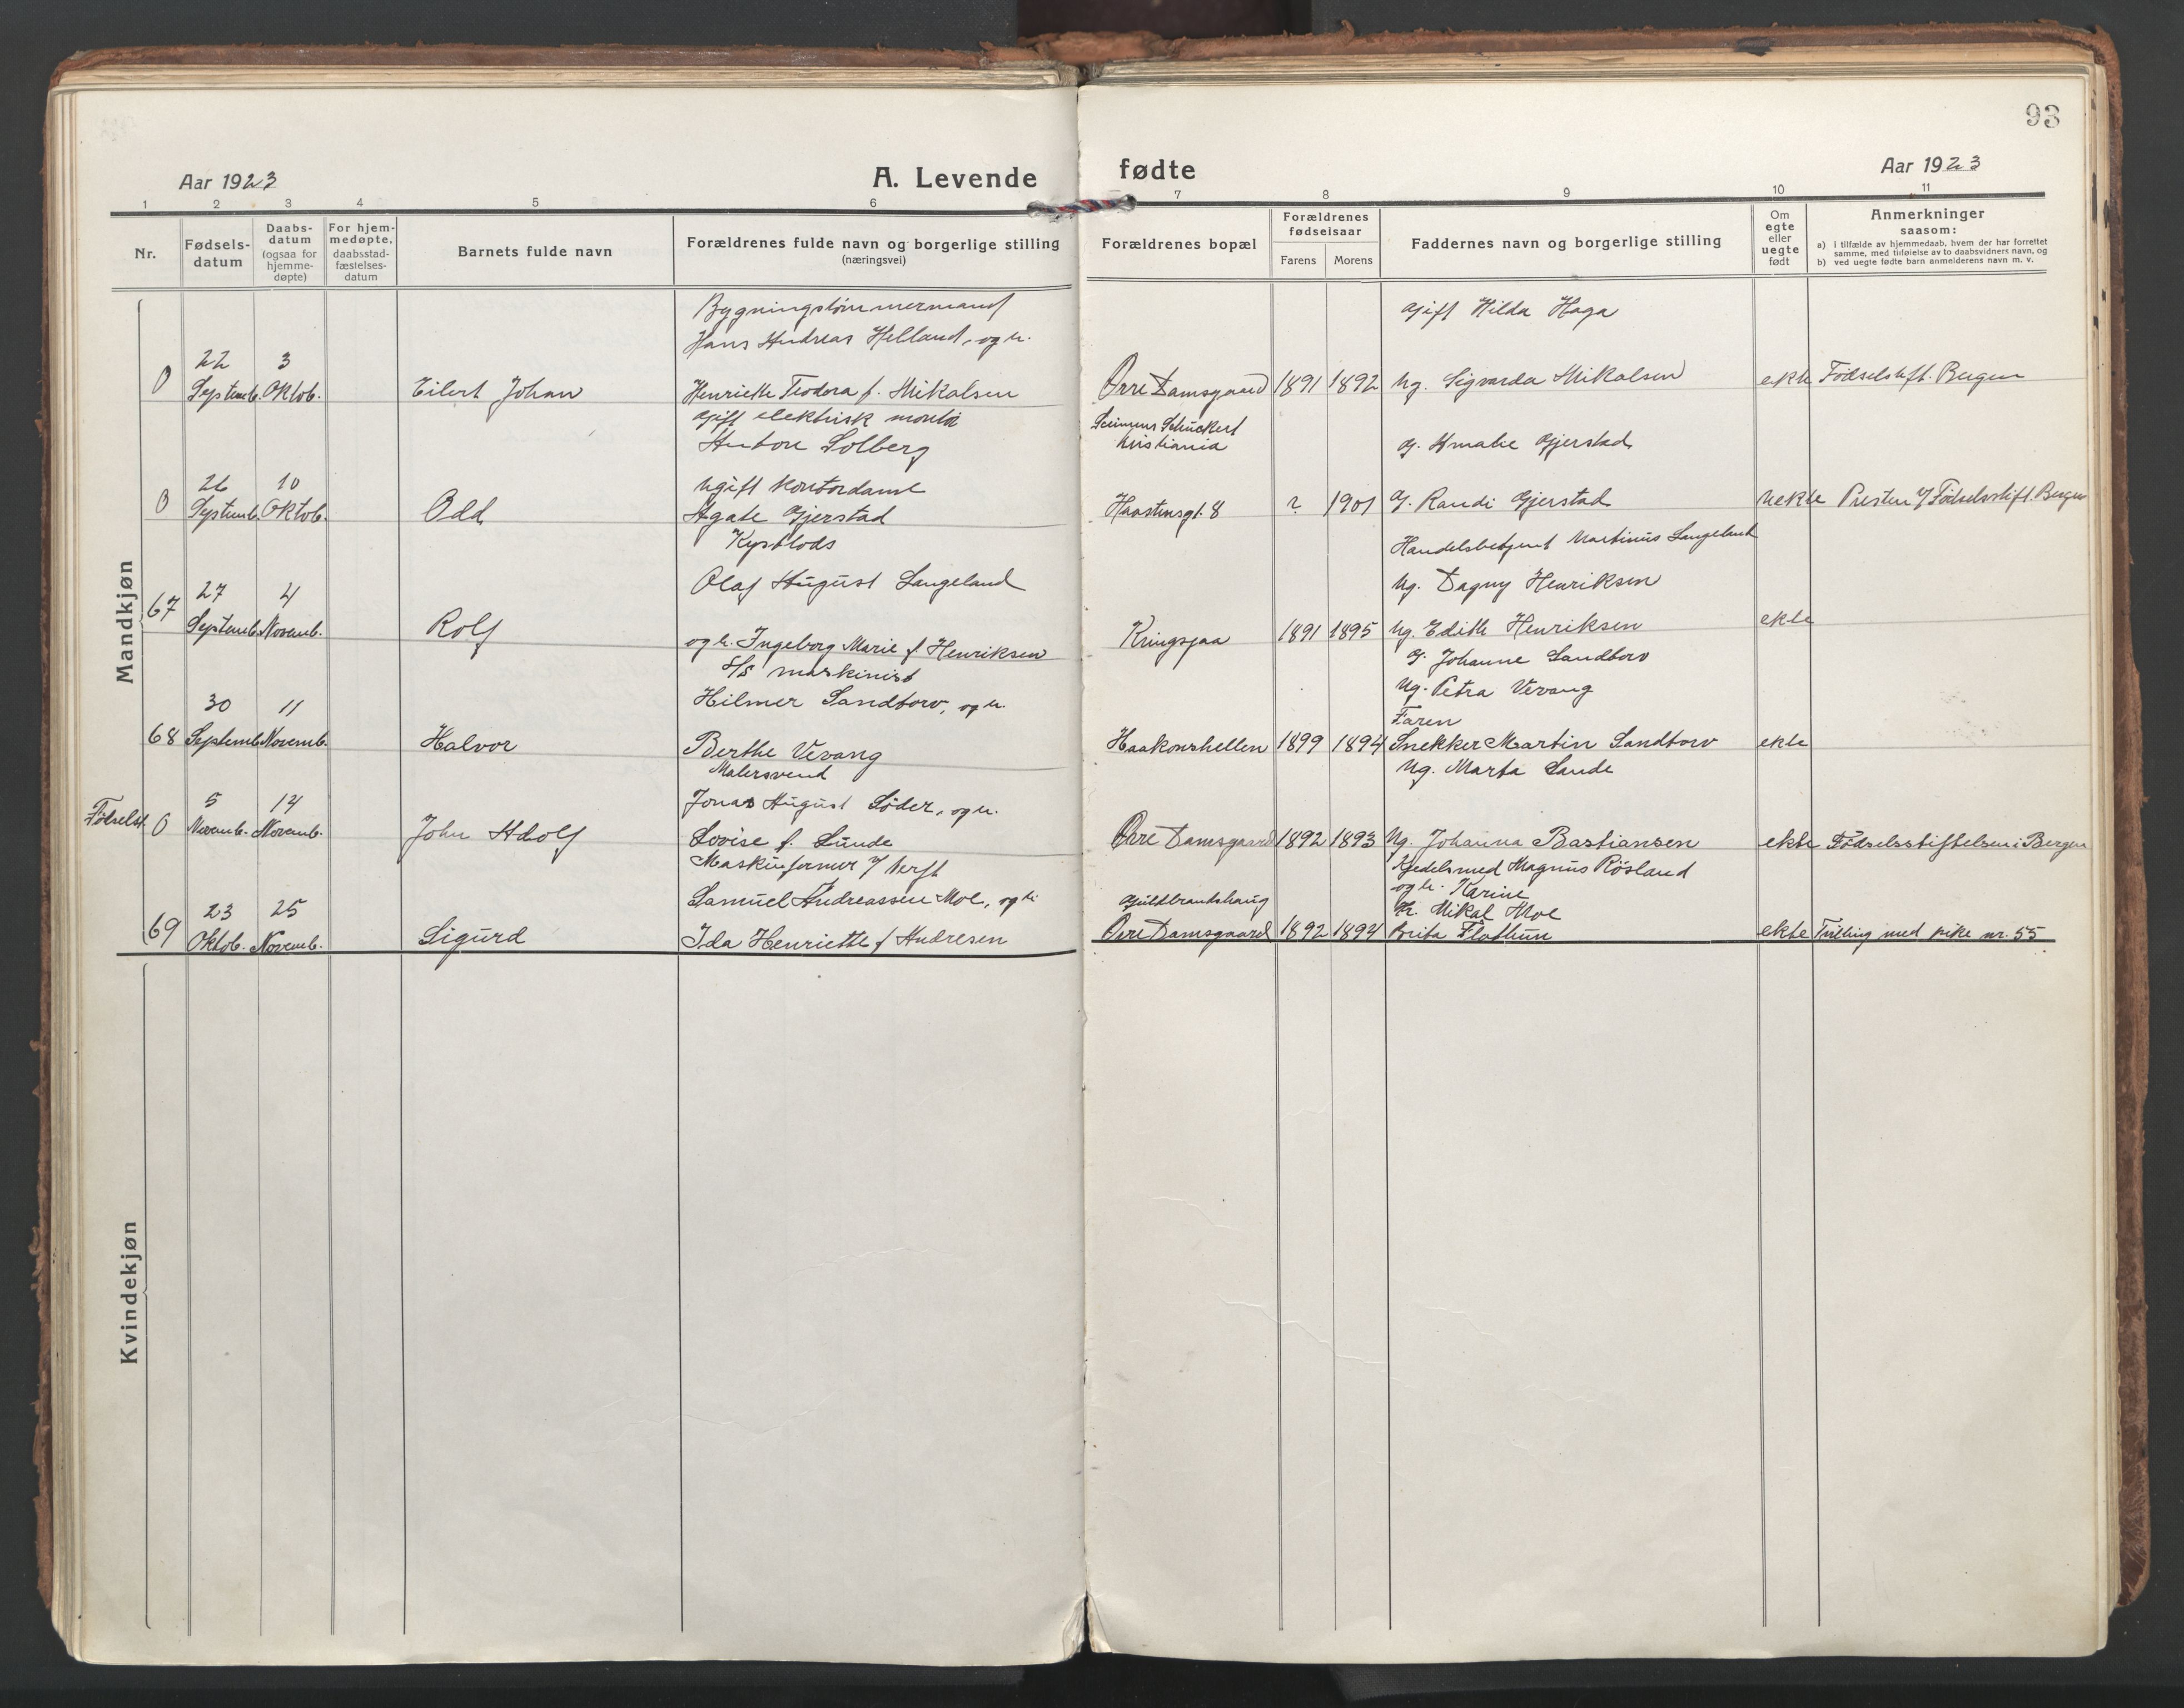 93
Aar 1923
A. Levende fødte
Aar 1923
1 2 3 4 5 6 7 8 9 10 11
Nr.
Fødsels-
datum
Daabs-
datum
(ogsaa for
hjemme-
døpte)
For hjem-
medøpte,
daabsstad-
fæstelses-
datum
Barnets fulde navn
Forældrenes fulde navn og borgerlige stilling
(næringsvei)
Forældrenes bopæl
Forældrenes
fødselsaar
Farens Morens
Faddernes navn og borgerlige stilling
Om
egte
eller
uegte
født
Anmerkninger
saasom:
a) i tilfælde av hjemmedaab, hvem der har forrettet
samme, med tilføielse av to daabsvidners navn, og
b) ved uegte fødte barn anmelderens navn m. v.
Mandkjøn
Bygningstømmermand
Hans Andreas Helland, og h.
Gift Hilda Haga
22 3
0 Septemb. Oktob. Eilert Johan Henriette Teodora f. Mikalsen Øvre Damsgaard 1891 1892 Ug. Sigvarda Mikalsen ekte Fødselstift. Bergen
Gift elektrisk montør
Anton Solberg
Schuckert
Kristiania
G. Amalie Gjerstad
26 10
Ugift kontordame
0 Septemb. Oktob. Odd Agate Gjerstad Haastensgt. 8 ? 1901 G. Randi Gjerstad uekte Presten v/ Fødselsstift. Bergen
Kystlods
Olaf August Langeland
Handelsbetjent Martinus Langeland
Ug. Dagny Henriksen
27 4
67 Septemb. Novemb. Rolf og h. Ingeborg Marie f. Henriksen Kringsjaa 1891 1895 Ug. Edith Henriksen ekte
S/S maskinist
Hilmer Sandtorv, og h.
G. Johanne Sandtorv
Ug. Petra Vevang
Faren
30 11
68 Septemb. Novemb. Halvor Berthe Vevang Haakonshellen 1899 1894 Snekker Martin Sandtorv ekte
Ug. Marta Sande
Malersvend
Jonas August Söder, og h.
5 14
Fødselst. 0 Novemb. Novemb. John Adolf Lovise f. Lunde Øvre Damsgaard 1892 1893 Ug. Johanna Bastiansen ekte Fødselsstiftelsen i Bergen
Maskinformer v/ Verft
Samuel Andreassen Moe, og h.
Kjedelsmed Magnus Røsland
og h. Karine
Mikal Moe
23 25
69 Oktob. Novemb. Sigurd Ida Henriette f. Andresen Øvre Damsgaard 1892 1894 Brita Flathun ekte Tvilling med pike nr. 55.
Kvindekjøn